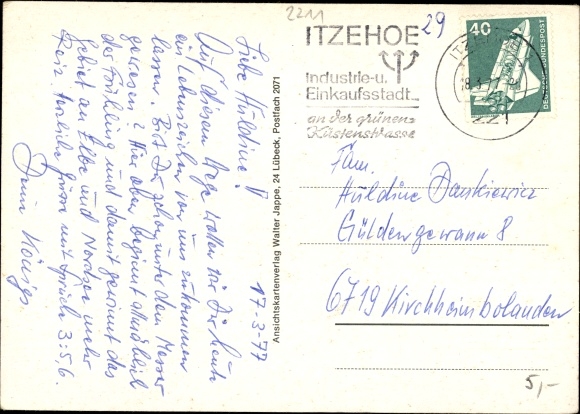 2211
29
ITZEHOE
Industrie-u.
Einkaufsstadt
an der grünen
Küstenstrasse
40
DEUTSCHE BUNDESPOST
ITZEHOE
18.3.
221
Liebe Huldine!
Auf diesem Wege wollen wir Dir heute
ein Lebenszeichen von uns zukommen
lassen. Bist Du schon unter dem Messer
gewesen? Hier oben beginnt allmählich
der Frühling und damit gewinnt das
Gebiet an Elbe und Nordsee mehr
Reiz. Herzliche Grüsse mit Sprüche 3:5,6.
Deine Königs
17-3-77
Ansichtskartenverlag Walter Jappe, 24 Lübeck, Postfach 2071
Fam.
Huldine Dankiewicz
Güldengewann 8
6719 Kirchheimbolanden
5,-